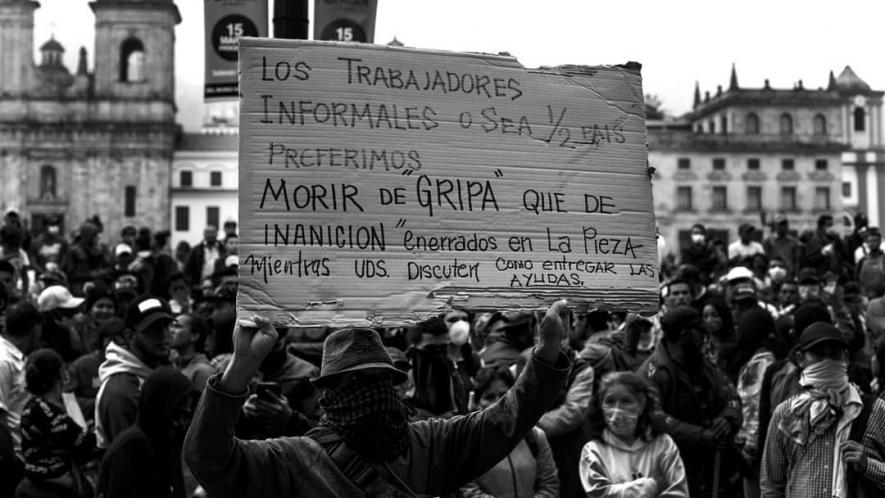 15
15
LOS TRABAJADORES
INFORMALES O SEA 1/2 PAIS
PREFERIMOS
MORIR DE "GRIPA" QUE DE
INANICION "enerrados en La PiezA
Mientras UDS. Discuten como entregar LAS
AYUDAS.